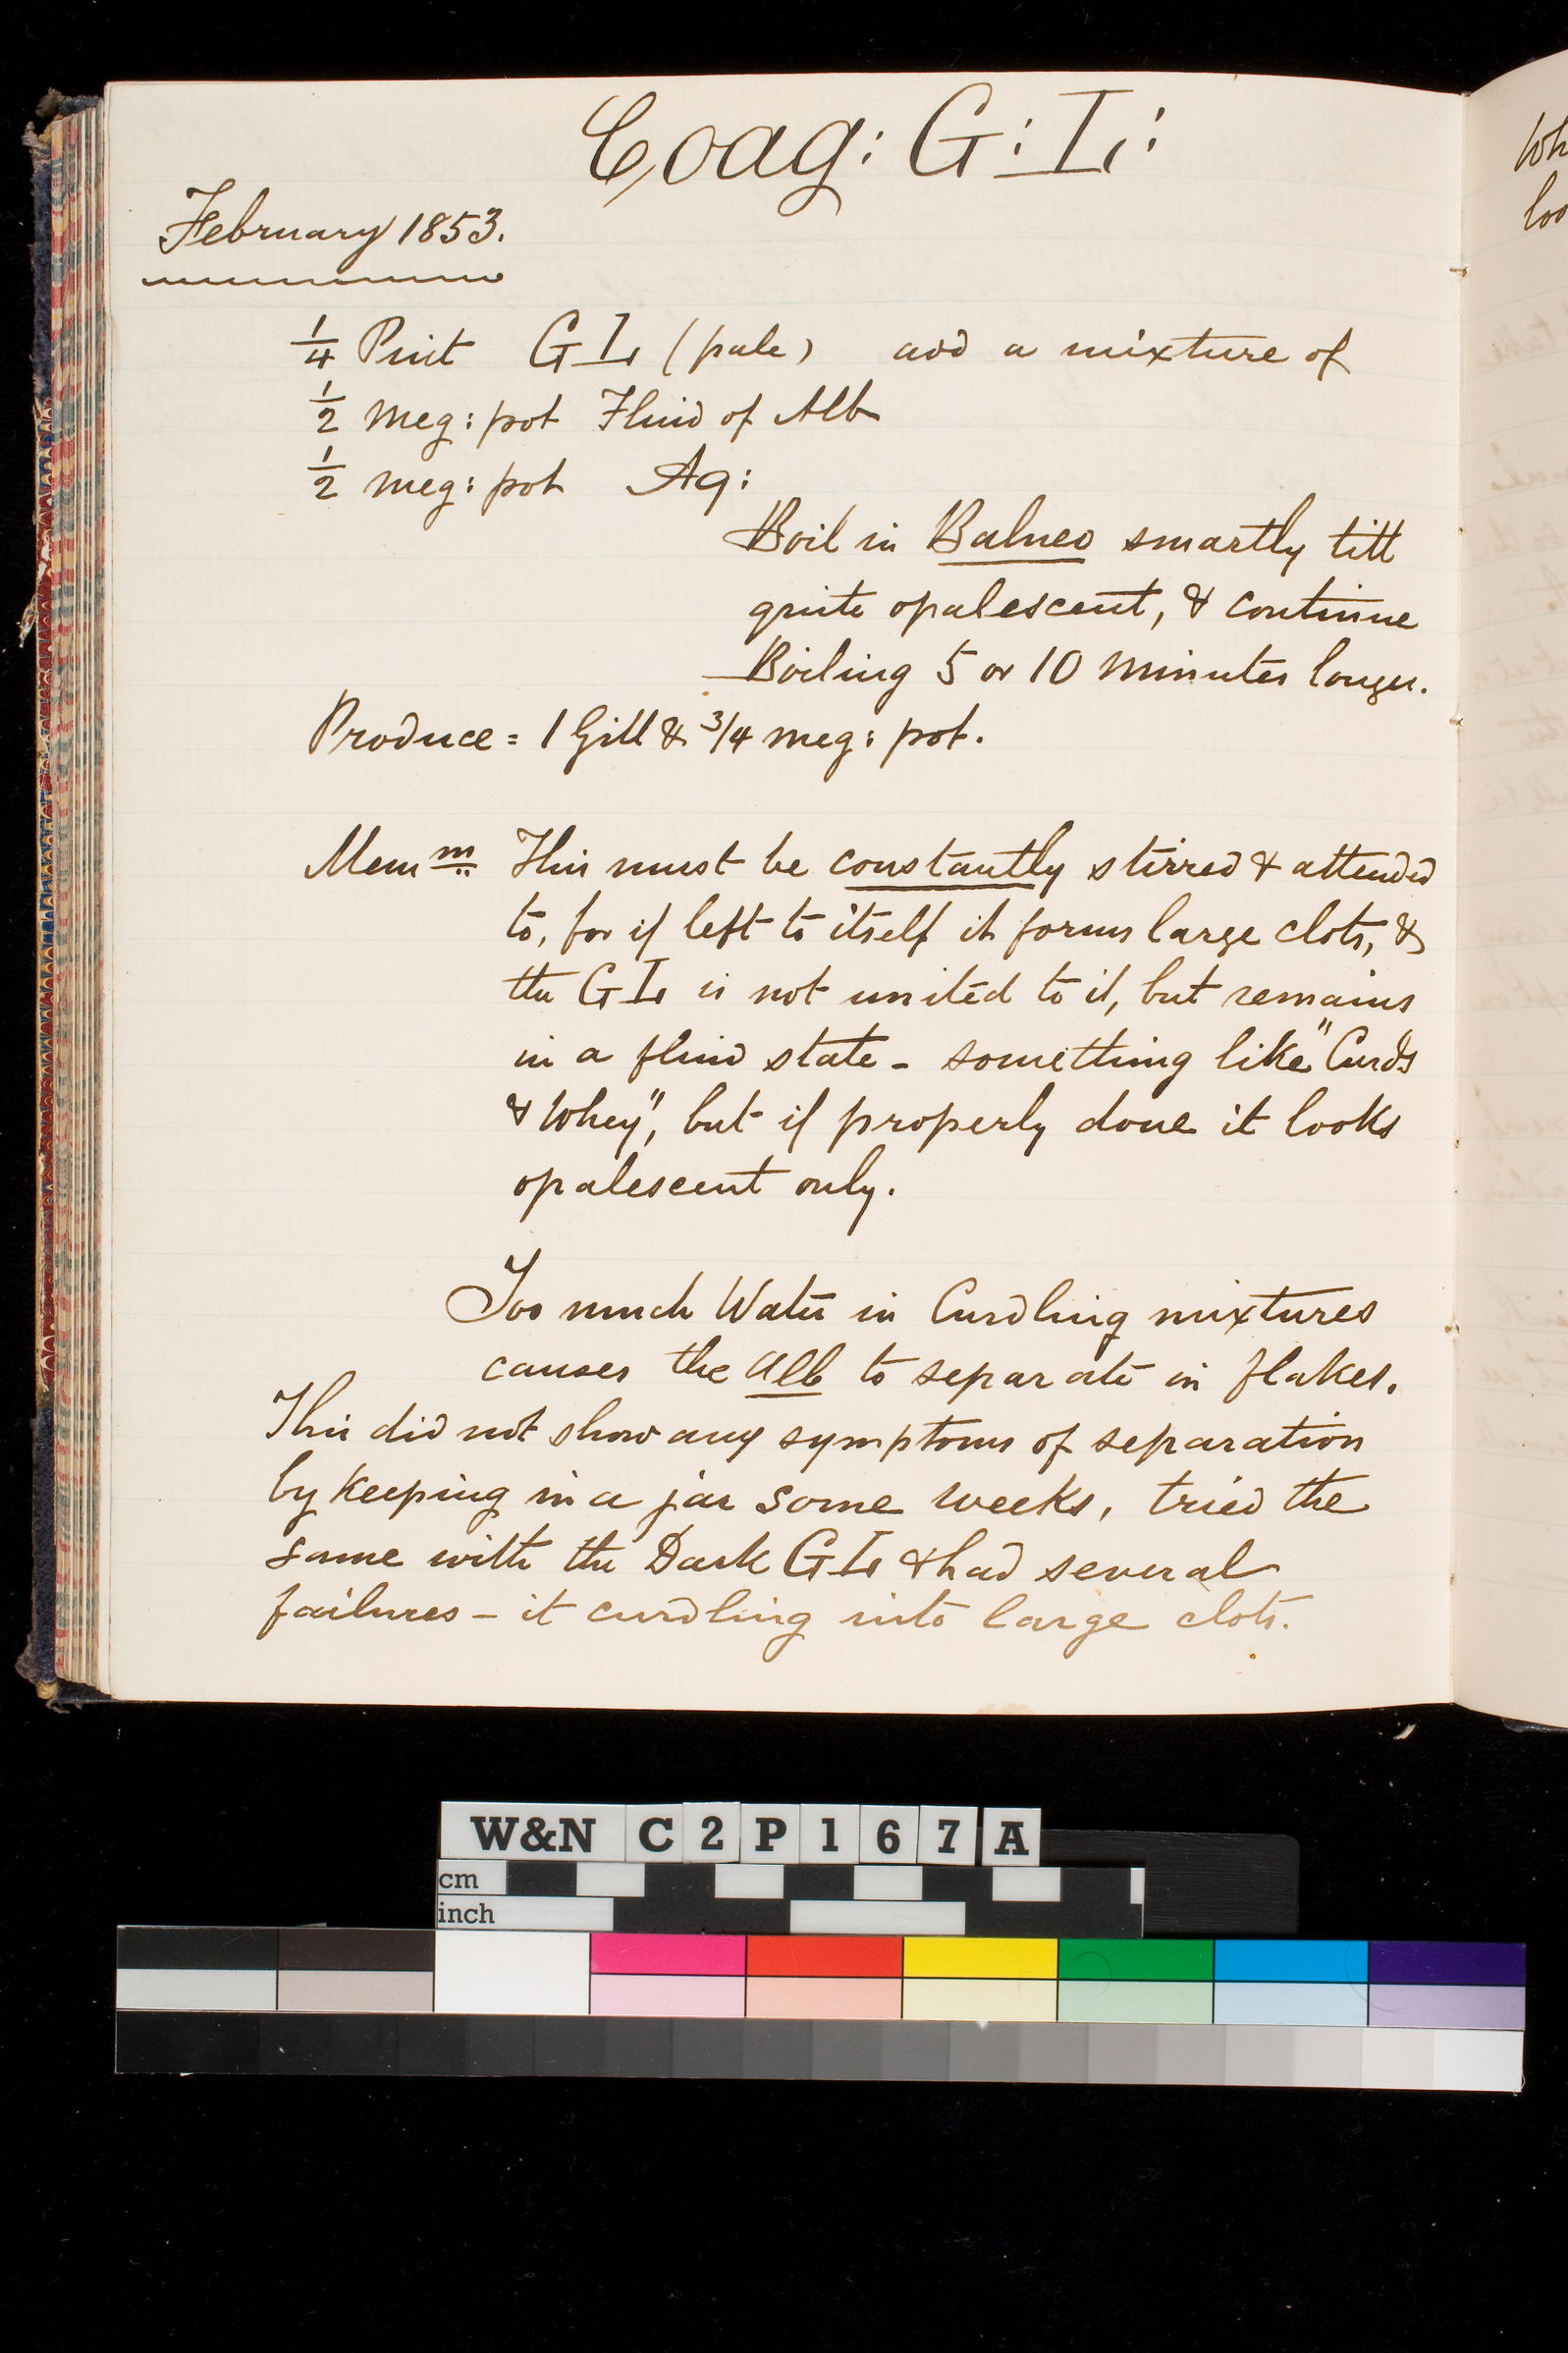 Coag: G: I:
February 1853.
1/4 Pint GI (pale) add a mixture of
1/2 meg: pot Fluid of Alb
1/2 meg: pot Aq:
Boil in Balneo smartly till
quite opalescent, & continue
Boiling 5 or 10 minutes longer.
Produce = 1 Gill & 3/4 meg: pot.
Memm This must be constantly stirred & attended
to, for if left to itself it forms large clots, &
the GI is not united to it, but remains
in a fluid state - something like "Curds
& Whey", but if properly done it looks
opalescent only.
Too much Water in Curdling mixtures
causes the Alb to separate in flakes.
This did not show any symptoms of separation
by keeping in a jar some weeks, tried the
same with the Dark GI & had several
failures - it curdling into large clots.
Wh
loo
W&N C2P167A
cm
inch